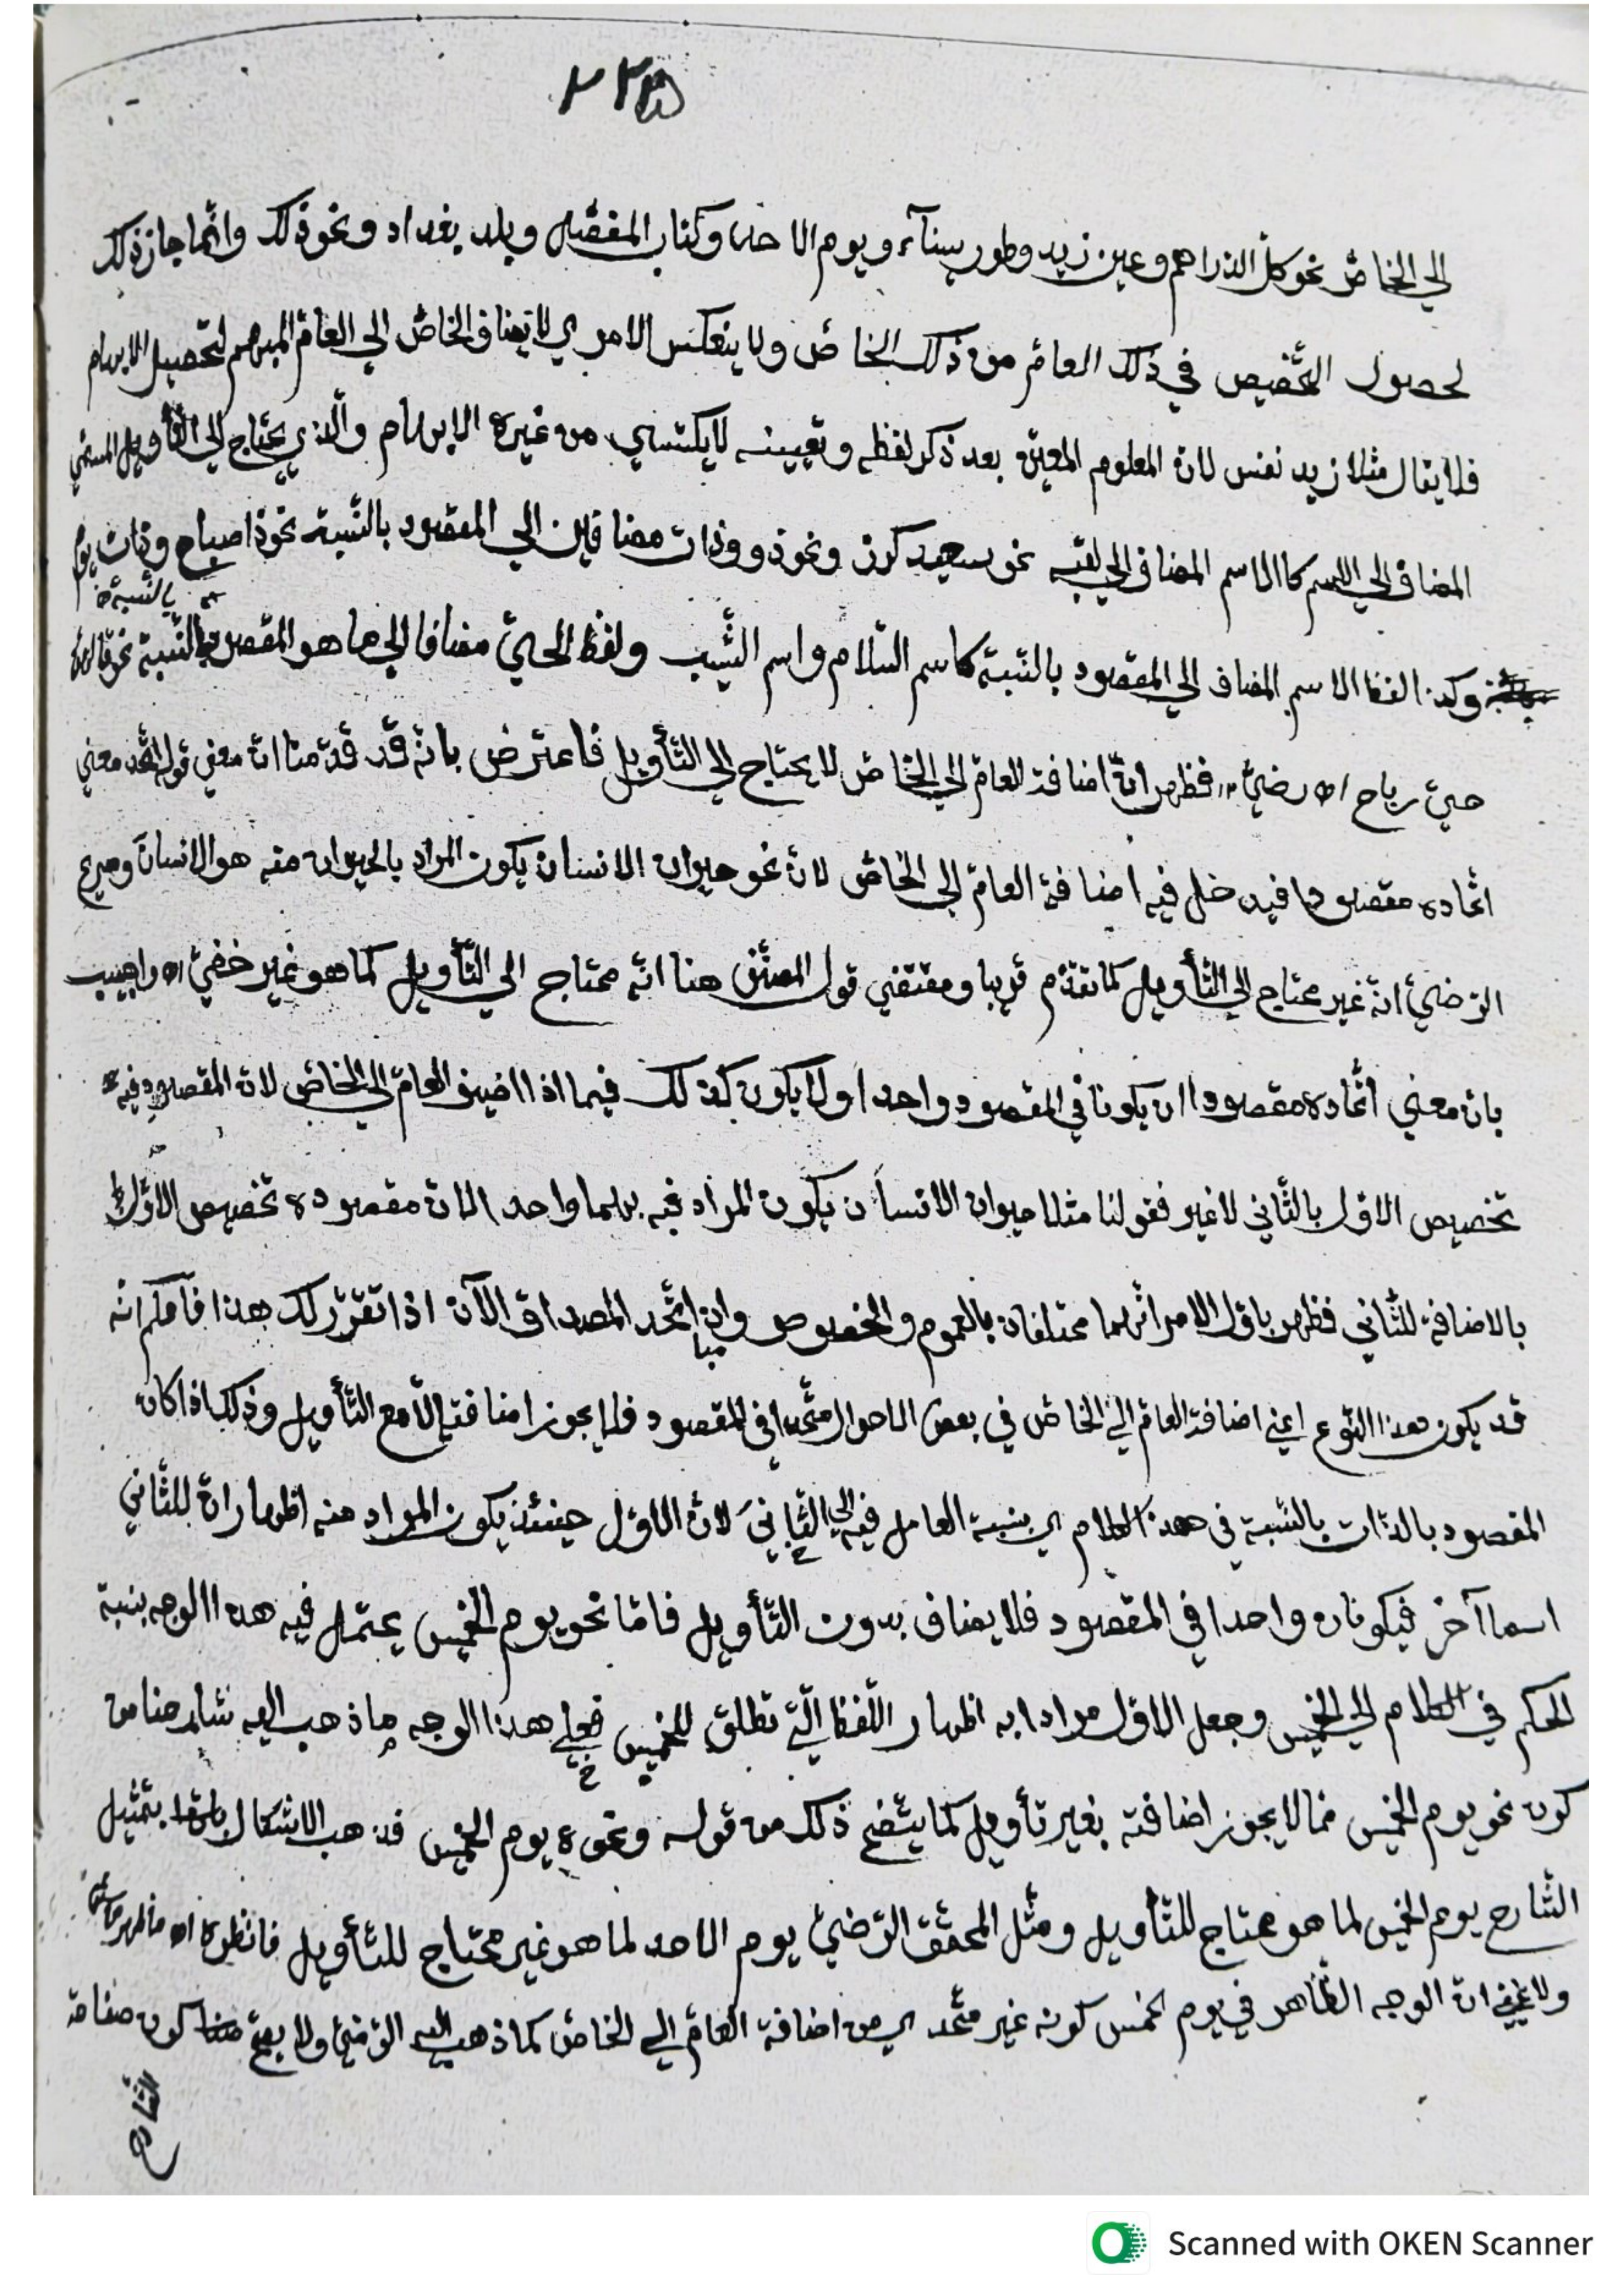 الي الخاصّ نحو كلّ الدّراهم وعين زيد وطور سيناء ويوم الاحد وكتاب المفصّل وبلد بغداد ونحو ذلك وانّما جاز ذلك
لحصول التّخصيص في ذلك العامّ من ذلك الخاصّ ولا ينعكس الامر اي لا يضاف الخاصّ الي العامّ المبهم لتحصيل الابهام
فلا يقال مثلا زيد نفس لانّ المعلوم المعيّن بعد ذكر لفظه وتعيينه لا يكتسي من غيره الابهام والّذي يحتاج الي التّأويل المسمّي
المضاف الي الاسم كالاسم المضاف الي لقبه نحو سعيد كرز ونحو ذو وذات مضافين الي المقصود بالنّسبة نحو ذا صباح وذات يوم
بالنّسبة خ
وكذا لفظ الاسم المضاف الي المقصود بالنّسبة كاسم السّلام واسم الشّيب ولفظ الحيّ مضافا الي ما هو المقصود بالنّسبة نحو قالهنّ
حيّ رباح اه رضيّ فظهر انّ اضافة العامّ الي الخاصّ لا يحتاج الي التّأويل فاعترض بانّه قد قدّمنا انّ معني قوله اتّحد معني
اتّحاده مقصودا فيدخل فيه اضافة العامّ الي الخاصّ لانّ نحو حيوان الانسان يكون المراد بالحيوان منه هو الانسان وصرّح
الرّضيّ انّه غير محتاج الي التّأويل كما تقدّم قريبا ومقتضي قول المصنّف هنا انّه محتاج الي التّأويل كما هو غير خفيّ اه واجيب
بانّ معني اتّحاده مقصودا ان يكونا في المقصود واحدا ولا يكون كذلك فيما اذا اضيف العامّ الي الخاصّ لانّ المقصود فيه
تخصيص الاوّل بالثّاني لا غير فقولنا مثلا حيوان الانسان يكون المراد فيه بهما واحد الا انّ مقصوده تخصيص الاوّل
بالاضافة للثّاني فظهر باوّل الامر انّهما مختلفان بالعموم والخصوص وان اتّحد المصداق الآن اذا تقرّر لك هذا فاعلم انّه
قد يكون هذا النّوع اعني اضافة العامّ الي الخاصّ في بعض الاحوال متّحدا في المقصود فلا يجوز اضافته الّا مع التّأويل وذلك اذا كان
المقصود بالذّات بالنّسبة في هذا الكلام اي بنسبة العامل فيه الي الثّاني لانّ الاوّل حينئذ يكون المراد منه اظهار انّ للثّاني
اسما آخر فيكونان واحدا في المقصود فلا يضاف بدون التّأويل فامّا نحو يوم الخميس يحتمل فيه هذا الوجه بنسبة
الحكم في الكلام الي الخميس وجعل الاوّل مرادا به اظهار اللّفظ الّتي تطلق للخميس فعلي هذا الوجه ما ذهب اليه شارحنا من
كون نحو يوم الخميس ممّا لا يجوز اضافته بغير تأويل كما يتّضح ذلك من قوله ونحوه يوم الخميس فذهب الاشكال بتمثيل
الشّارح يوم الخميس لما هو محتاج للتّأويل ومثّل المحقّق الرّضيّ يوم الاحد لما هو غير محتاج للتّأويل فانظره اه
ولا يخفي انّ الوجه الظّاهر في يوم الخميس كونه غير متّحد اي من اضافة العامّ الي الخاصّ كما ذهب اليه الرّضيّ ولا يصحّ كون
الشّارح
Scanned with OKEN Scanner